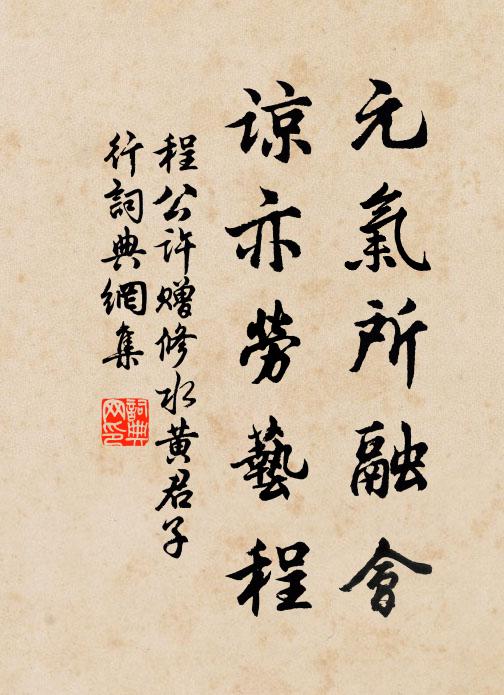 元氣所融會
諒亦勞藝程
程公许赠修水黄君子
行詞典網集
詞典
网印